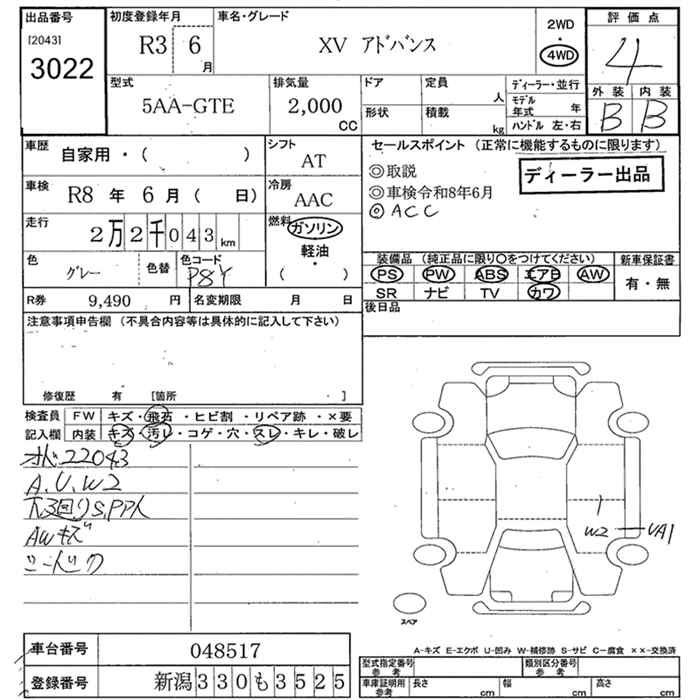 出品番号
[2043]
3022
初度登録年月
R3 6月
車名・グレード
XV アドバンス
2WD
・
4WD
評価点
4
外装 内装
B B
型式
5AA-GTE
排気量
2,000
CC
ドア
定員
人
形状
積載
kg
ディーラー・並行
モデル年式 年
ハンドル 左・右
車歴
自家用・( )
シフト
AT
セールスポイント (正常に機能するものに限ります)
◎取説
◎車検令和8年6月
◎ACC
ディーラー出品
車検
R8 年 6 月 ( 日)
冷房
AAC
走行
2万2千043km
燃料
ガソリン
軽油・
( )
色
グレー
色替
色コード
P8Y
装備品 (純正品に限り○をつけてください)
PS PW ABS エアB AW
SR ナビ TV カワ
新車保証書
有・無
R券 9,490 円
名変期限 月 日
後日品
注意事項申告欄 (不具合内容等は具体的に記入して下さい)
修復歴 有 [箇所 ・ ]
検査員
記入欄
FW キズ・飛石・ヒビ割・リペア跡・×要
内装 キズ・汚レ・コゲ・穴・スレ・キレ・破レ
22043
A.U.W2
下3回りS.PP人
AWキズ
W2 UA1
スペア
A-キズ E-エクボ U-凹み W-補修跡 S-サビ C-腐食 ××-交換済
車台番号
048517
登録番号
新潟330も3525
型式指定番号
参考
類別区分番号
参考
車庫証明用
参考
長さ cm
幅 cm
高さ cm